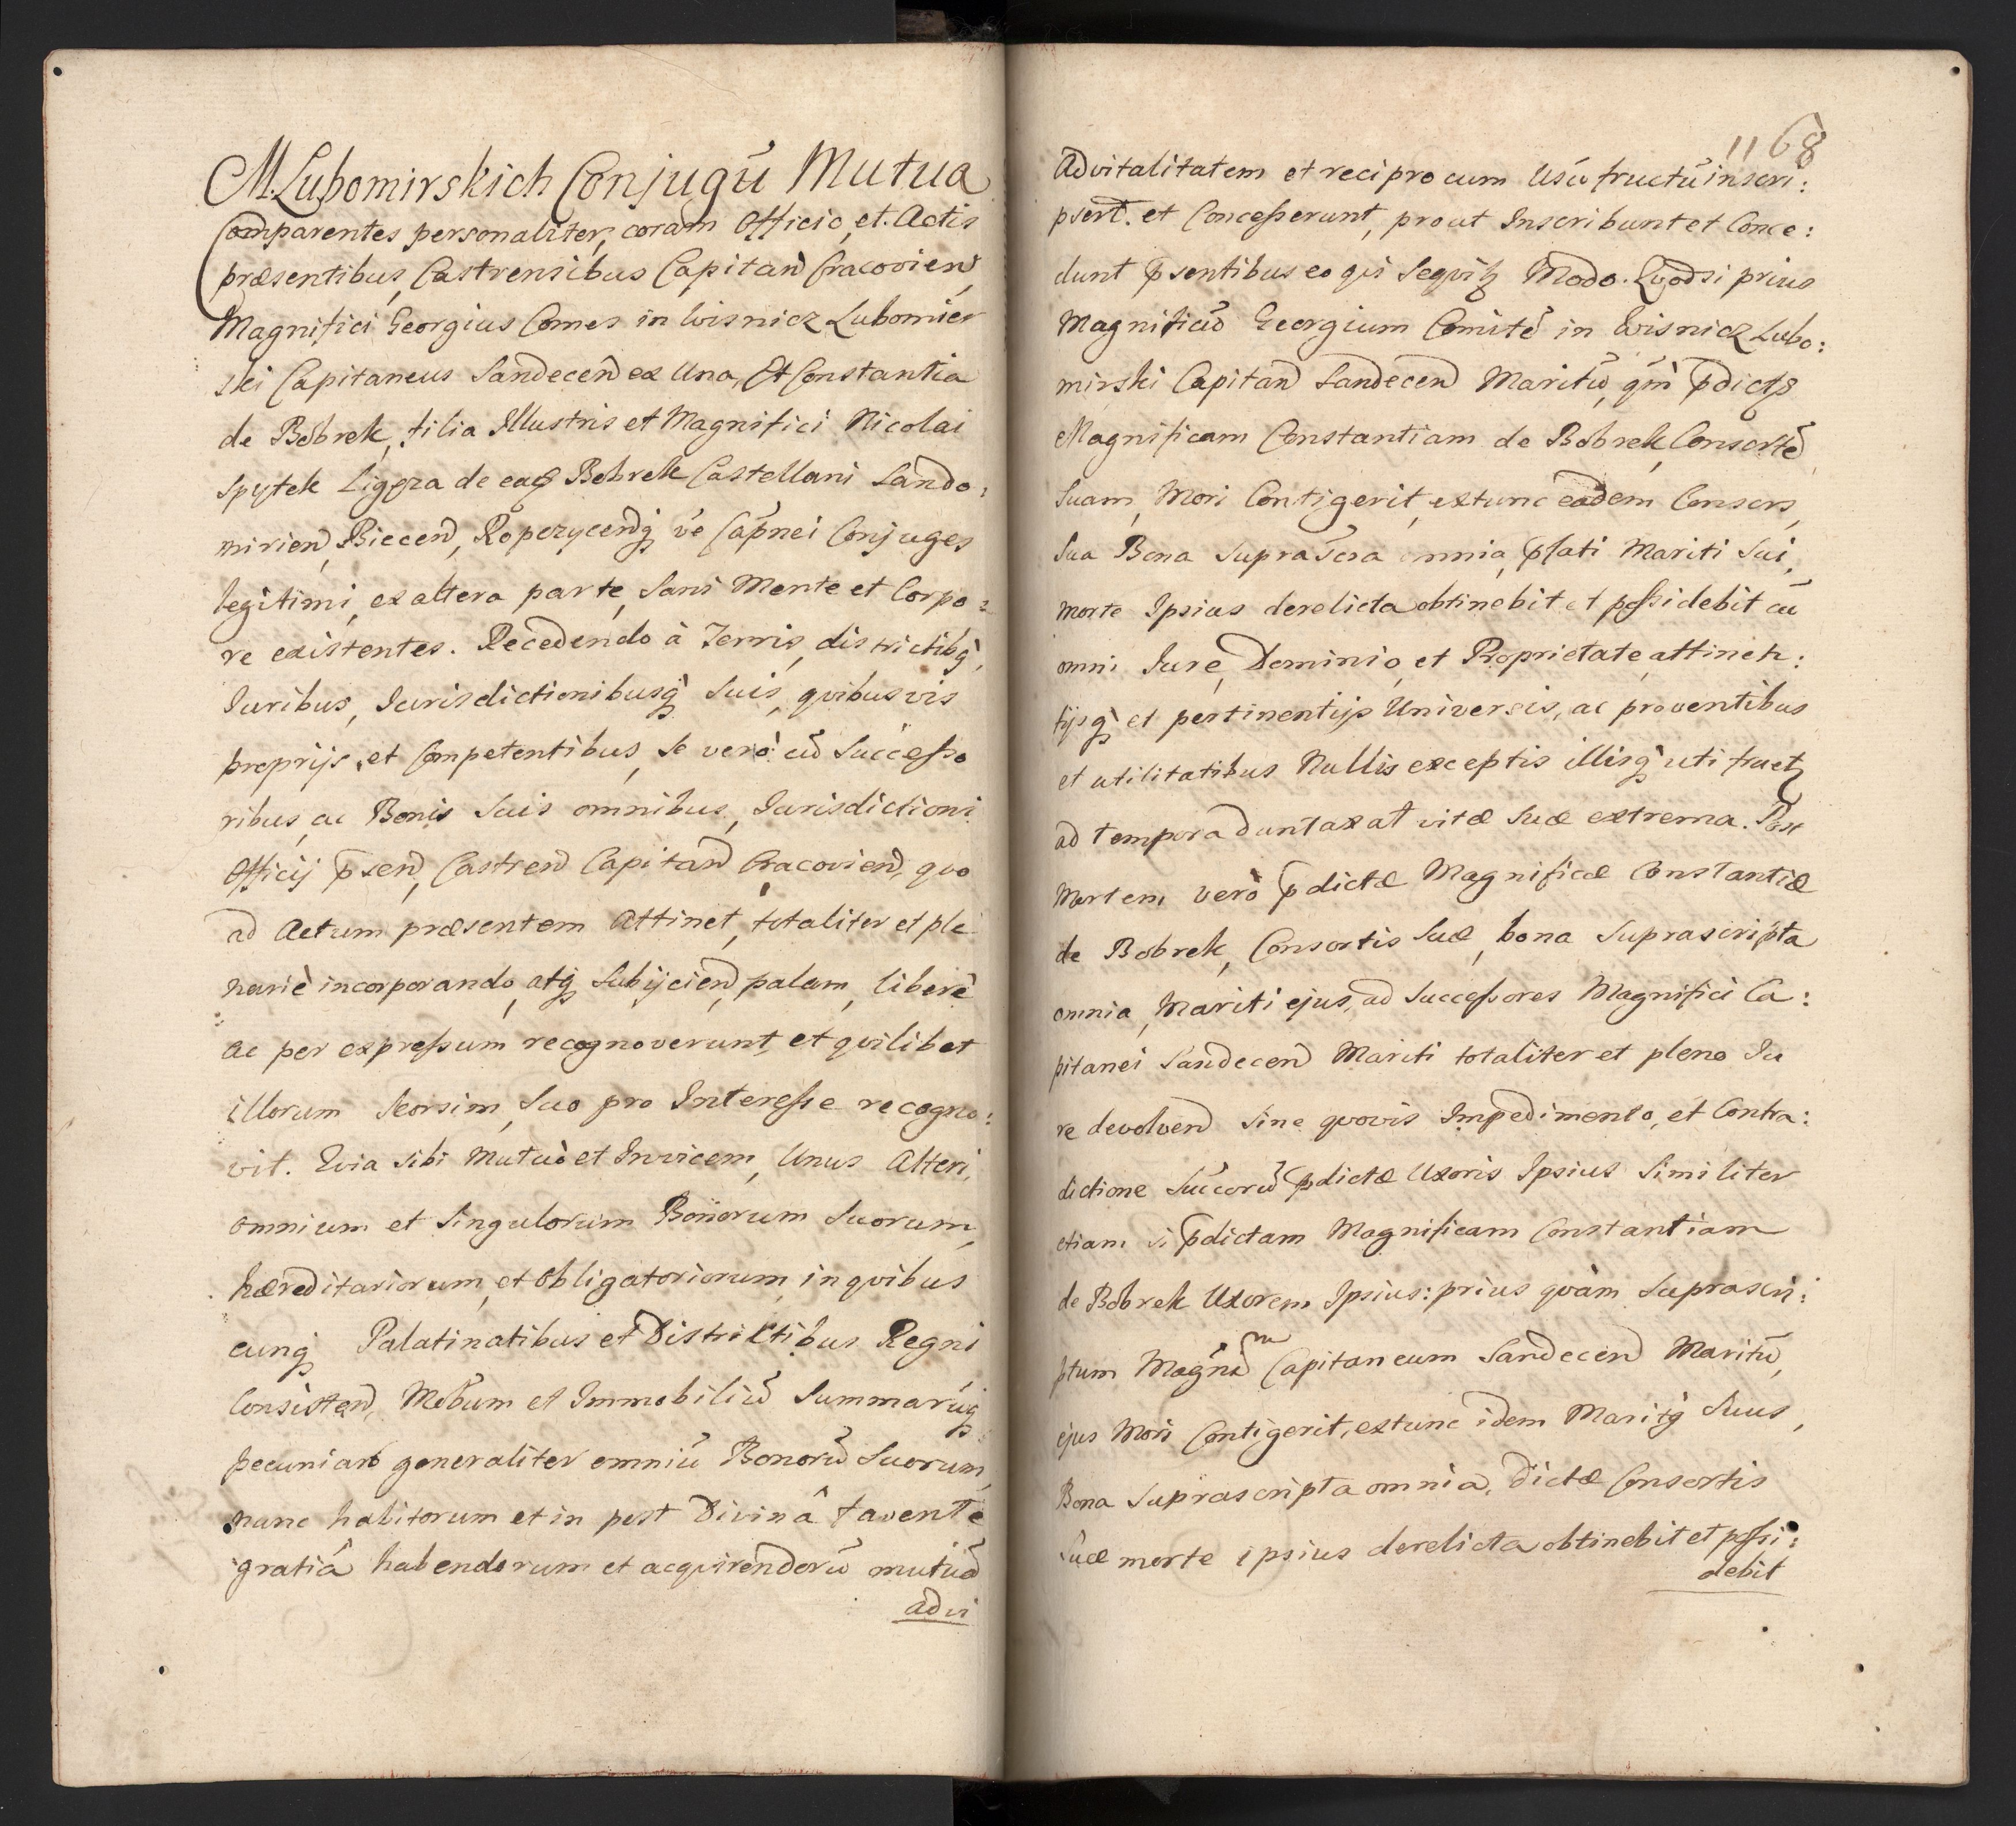 M. Lubomirskich Conjugū Mutua
Comparentes personaliter, coram Officio, et Actis
præsentibus, Castrensibus Capitan̄ Cracovien̄,
Magnifici Georgius Comes in Wisnicz Lubomier
ski Capitaneus Sandecen̄ ex Una, Et Constantia
de Bobrek, filia Illustris et Magnifici Nicolai
Spytek Ligęza de eaď Bobrek Castellani Sando:
mirien̄, Biecen̄, Ropczycen̄q́ ve Capnei Conjuges
legitimi, ex altera parte, Sani Mente et Corpo:
re existentes. Recedendo à Terris, districtibq́,
Iuribus, Iurisdictionibusq́ Suis, qvibusvis
proprijs, et Competentibus, Se verò cū Successo
ribus, ac Bonis Suis omnibus, Iurisdictioni
Officij p̄sen̄, Castren̄ Capitan̄ Cracovien̄, qvo
ad Actum præsentem Attinet, totaliter et ple
nariè incorporando, atq́ Subijcien̄, palam, liberè
ac per expressum recognoverunt, et qvilibet
illorum Seorsim, Suo pro Interesse recogno:
vit. Qvia sibi Mutuò et Invicem, Unus Alteri,
omnium et Singulorum Bonorum Suorum,
hæreditariorum, et Obligatoriorum, in qvibus
cunq́ Palatinatibus et Districtibus Regni
Consisten̄, Mobum et Immobiliū Summarúq́
pecuniar̄ generaliter omniū Bonorū Suorum,
nunc habitorum et in post Divinâ favente
gratiâ habendorum et acqvirendorū mutuā
advi
1168
Advitalitatem et reciprocum Usūfructū inscri:
pserť. et Concesserunt, prout Inscribunt et Conce:
dunt p̄sentibus eo qui Seqvitȝ Modo. Qvodsi prius
Magnificū Georgium Comitē in Wisnicz Lubo:
mirski Capitan̄ Sandecen̄ Maritū, qm̄ p̄dictȝ
Magnificam Constantiam de Bobrek, Consortē
Suam, Mori Contigerit, extunc eadem Consors,
Sua Bona Suprascra omnia, p̄fati Mariti Sui,
morte Ipsius derelicta obtinebit et possidebit cū
omni Iure, Dominio, et Proprietate, attinen:
tijsq́ et pertinentijs Universis, ac proventibus
et utilitatibus Nullis exceptis illisq́ uti fruetȝ
ad tempora duntaxat vitæ Suæ extrema. Post
Mortem verò p̄dictæ Magnificæ Constantiæ
de Bobrek, Consortis Suæ, bona Suprascripta
omnia, Mariti ejus, ad Successores Magnifici Ca:
pitanei Sandecen̄ Mariti totaliter et pleno Iu
re devolven̄ Sine qvovis Impedimento, et Contra:
dictione Succorū p̄dictæ Uxoris Ipsius Similiter
etiam si p̄dictam Magnificam Constantiam
de Bobrek Uxorem Ipsius: prius qvàm Suprascri:
ptum Magn̄um Capitaneum Sandecen̄ Maritū,
ejus Mori Contigerit, extunc idem Maritq́ Suus,
Bona Suprascripta omnia, Dictæ Consortis
Suæ morte ipsius derelicta obtinebit et possi:
debit